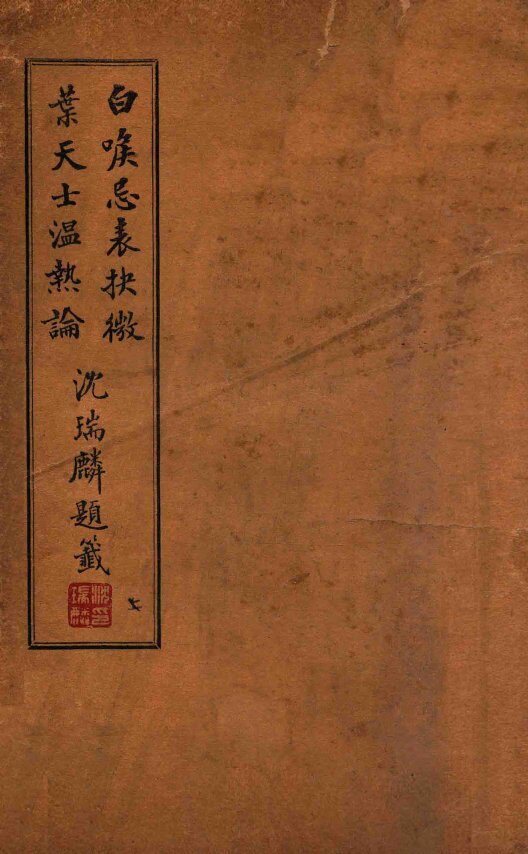 白喉忌表抉微
葉天士温熱論
沈瑞麟題籤
七